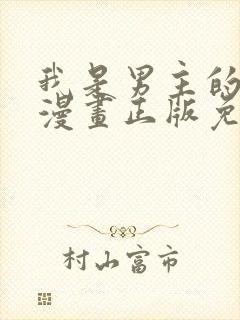 我是男主的
漫畫正版免
村山富市